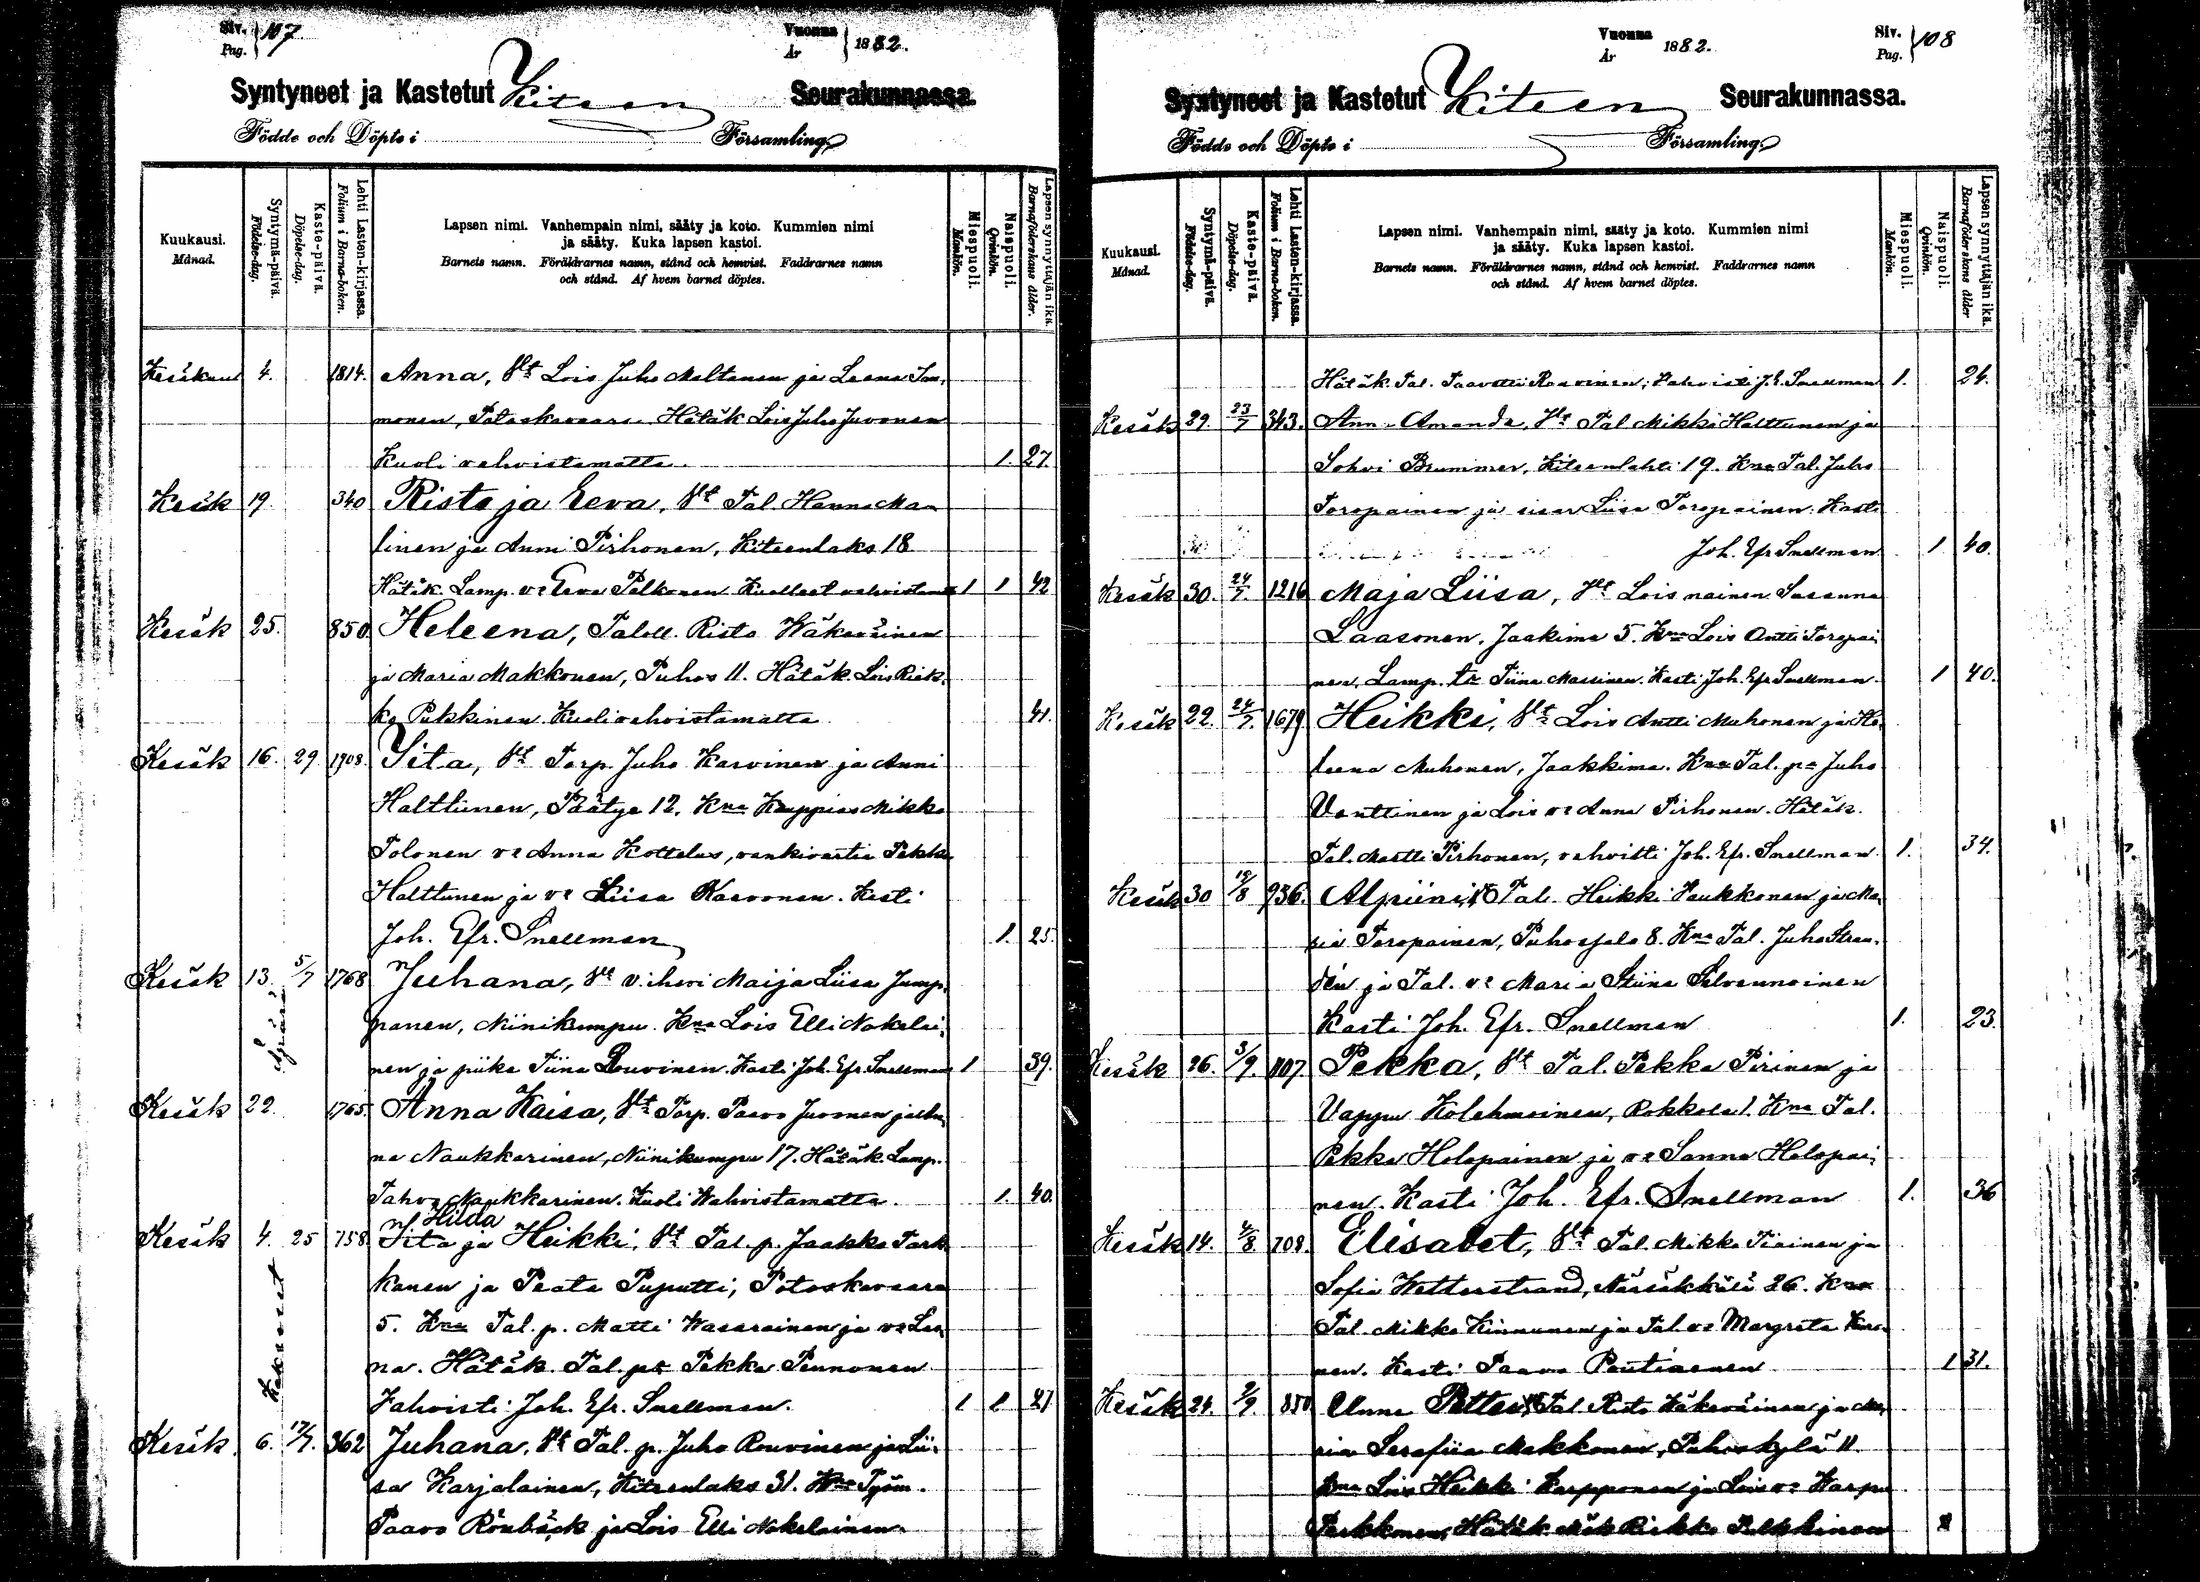 Siv. Pag. } 107
Vuonna År } 1882.
Syntyneet ja Kastetut Kiteen Seurakunnassa.
Födde och Döpte i Församling
Kuukausi. Månad.
Syntymä-päivä. Födelse-dag.
Kaste-päivä. Döpelse-dag.
Lehti Lasten-kirjassa. Folium i Barna-boken.
Lapsen nimi. Vanhempain nimi, sääty ja koto. Kummien nimi
ja sääty. Kuka lapsen kastoi.
Barnets namn. Föräldrarnes namn, stånd och hemvist. Faddrarnes namn
och stånd. Af hvem barnet döptes.
Miespuoli. Mankön.
Naispuoli. Qvinkön.
Lapsen synnyttäjän ikä. Barnaföderskans ålder.
Kesäkuu 4. 1814. Anna, Vt Lois Juho Maltanen ja Leena Im-
monen, Potoskavaara. Hätäk Lois Juho Juvonen
Kuoli vahvistamatta. 1. 27.
Kesäk 19. 340 Risto ja Eeva, Vt Tal. Hannu Ma
linen ja Anni Pirhonen, Kiteenlaks 18
Hätäk. Lamp. va Eeva Pelkonen Kuolleet vahvistam 1 1 42
Kesäk 25. 850 Heleena, Taloll. Risto Wäkeväinen
ja Maria Makkonen, Puhos 11. Hätäk. Lois Riek-
ko Pukkinen. Kuoli vahvistamatta 41.
Kesäk 16. 29 1708. Iita, Vt Torp. Juho Karvinen ja Anni
Halttunen, Päätye 12. Kna Kauppias Mikko
Tolonen va Anna Kottelus, vankivartia Pekka
Halttunen ja va Liisa Kasvonen. Kasti
Joh. Efr. Snellman 1. 25.
Kesäk 13. 5/7 1768 Juhana, Vt Maija Liisa Jump-
panen, Niinikumpu. Kna Lois Elli Nokelai-
nen ja piika Tiina Rouvinen. Kasti Joh. Efr. Snellman 1 39.
Kesäk 22. 1765. Anna Kaisa, Vt Torp. Paavo Juvonen ja An-
na Naukkarinen, Niinikumpu 17. Hätäk. Lamp.
Tahvo Naukkarinen. Kuoli Wahvistamatta. 1. 40.
Hilda
Kesäk 4. 25 758 Iita ja Heikki, Vt Tal. p. Jaakko Tark
Kaksoset
kanen ja Peata Puputti, Potoskavaara
5. Kna Tal. p. Matti Wasarainen ja va Lee-
na. Hätäk. Tal. pa Pekka Pennonen
Vahvisti Joh. Efr. Snellman. 1 1 47
Kesäk. 6. 17/7. 362 Juhana. Vt Tal. p. Juho Rouvinen ja Lii-
sa Karjalainen, Kiteenlaks 31. Kna Työm.
Paavo Rönbäck ja Lois Elli Nokelainen
Vuonna År 1882.
Siv. Pag. } 108
Syntyneet ja Kastetut Kiteen Seurakunnassa.
Födde och Döpte i Församling
Kuukausi. Månad.
Syntymä-päivä. Födelse-dag.
Kaste-päivä. Döpelse-dag.
Lehti Lasten-kirjassa. Folium i Barna-boken.
Lapsen nimi. Vanhempain nimi, sääty ja koto. Kummien nimi
ja sääty. Kuka lapsen kastoi.
Barnets namn. Föräldrarnes namn, stånd och hemvist. Faddrarnes namn
och stånd. Af hvem barnet döptes.
Miespuoli. Mankön.
Naispuoli. Qvinkön.
Lapsen synnyttäjän ikä. Barnaföderskans ålder
Hätäk. Tal. Taavetti Rouvinen; Vahvisti J. E. Snellman 1. 24.
Kesäk 29. 23/7 343. Anna Amanda, Vt Tal Mikki Halttunen ja
Sohvi Brummer, Kiteenlahti 19. Kna Tal. Juho
Toropainen ja sisar Liisa Toropainen. Kasti
Joh. Efr Snellman 1 40.
Kesäk 30. 24/7. 1216 Maja Liisa, Vt Lois nainen Susanna
Laasonen, Jaakima 5. Kna Lois Antti Toropai-
nen, Lamp. tr Tiina Massinen. Kasti Joh. Efr Snellman 1 40.
Kesäk 22. 24/7. 1679 Heikki, Vt Lois Antti Muhonen ja He-
leena Muhonen, Jaakkima. Kna Tal. pa Juho
Vänttinen ja Lois va Anna Pirhonen. Hätäk.
Tal. Martti Pirhonen, vahvisti Joh. Efr. Snellman 1. 34.
Kesäk 30 19/8 936. Alpiini, Vt Tal. Heikki Haukkonen ja Ma-
ria Toropainen, Puhosjala 8. Kna Tal. Juho Stran-
dén ja Tal. va Maria Stiina Silvennoinen
Kasti Joh. Efr. Snellman 1. 23.
Kesäk 26. 3/9. 1107. Pekka, Vt Tal. Pekka Pirinen ja
Vappu Kolehmainen, Rokkala 1. Kna Tal.
Pekka Holopainen ja va Sanna Holopai-
nen. Kasti Joh. Efr. Snellman 1. 36
Kesäk 14. 4/8 708. Elisabet, Vt Tal. Mikko Tiainen ja
Sofia Wetterstrand, Närsäkkälä 26. Kna
Tal. Mikko Kinnunen ja Tal. va Margreta
nen. Kasti Paavo Pautiaenen 1 31.
Kesäk 24. 2/9. 850 Anna Vt Tal. Risto Wäkeväinen ja Ma-
ria Serafiia Makkonen, Puhoskylä 11
Kna Lois Heikki Karpponen ja Lois va Karpu
Hätäk Riekko Pukkinen